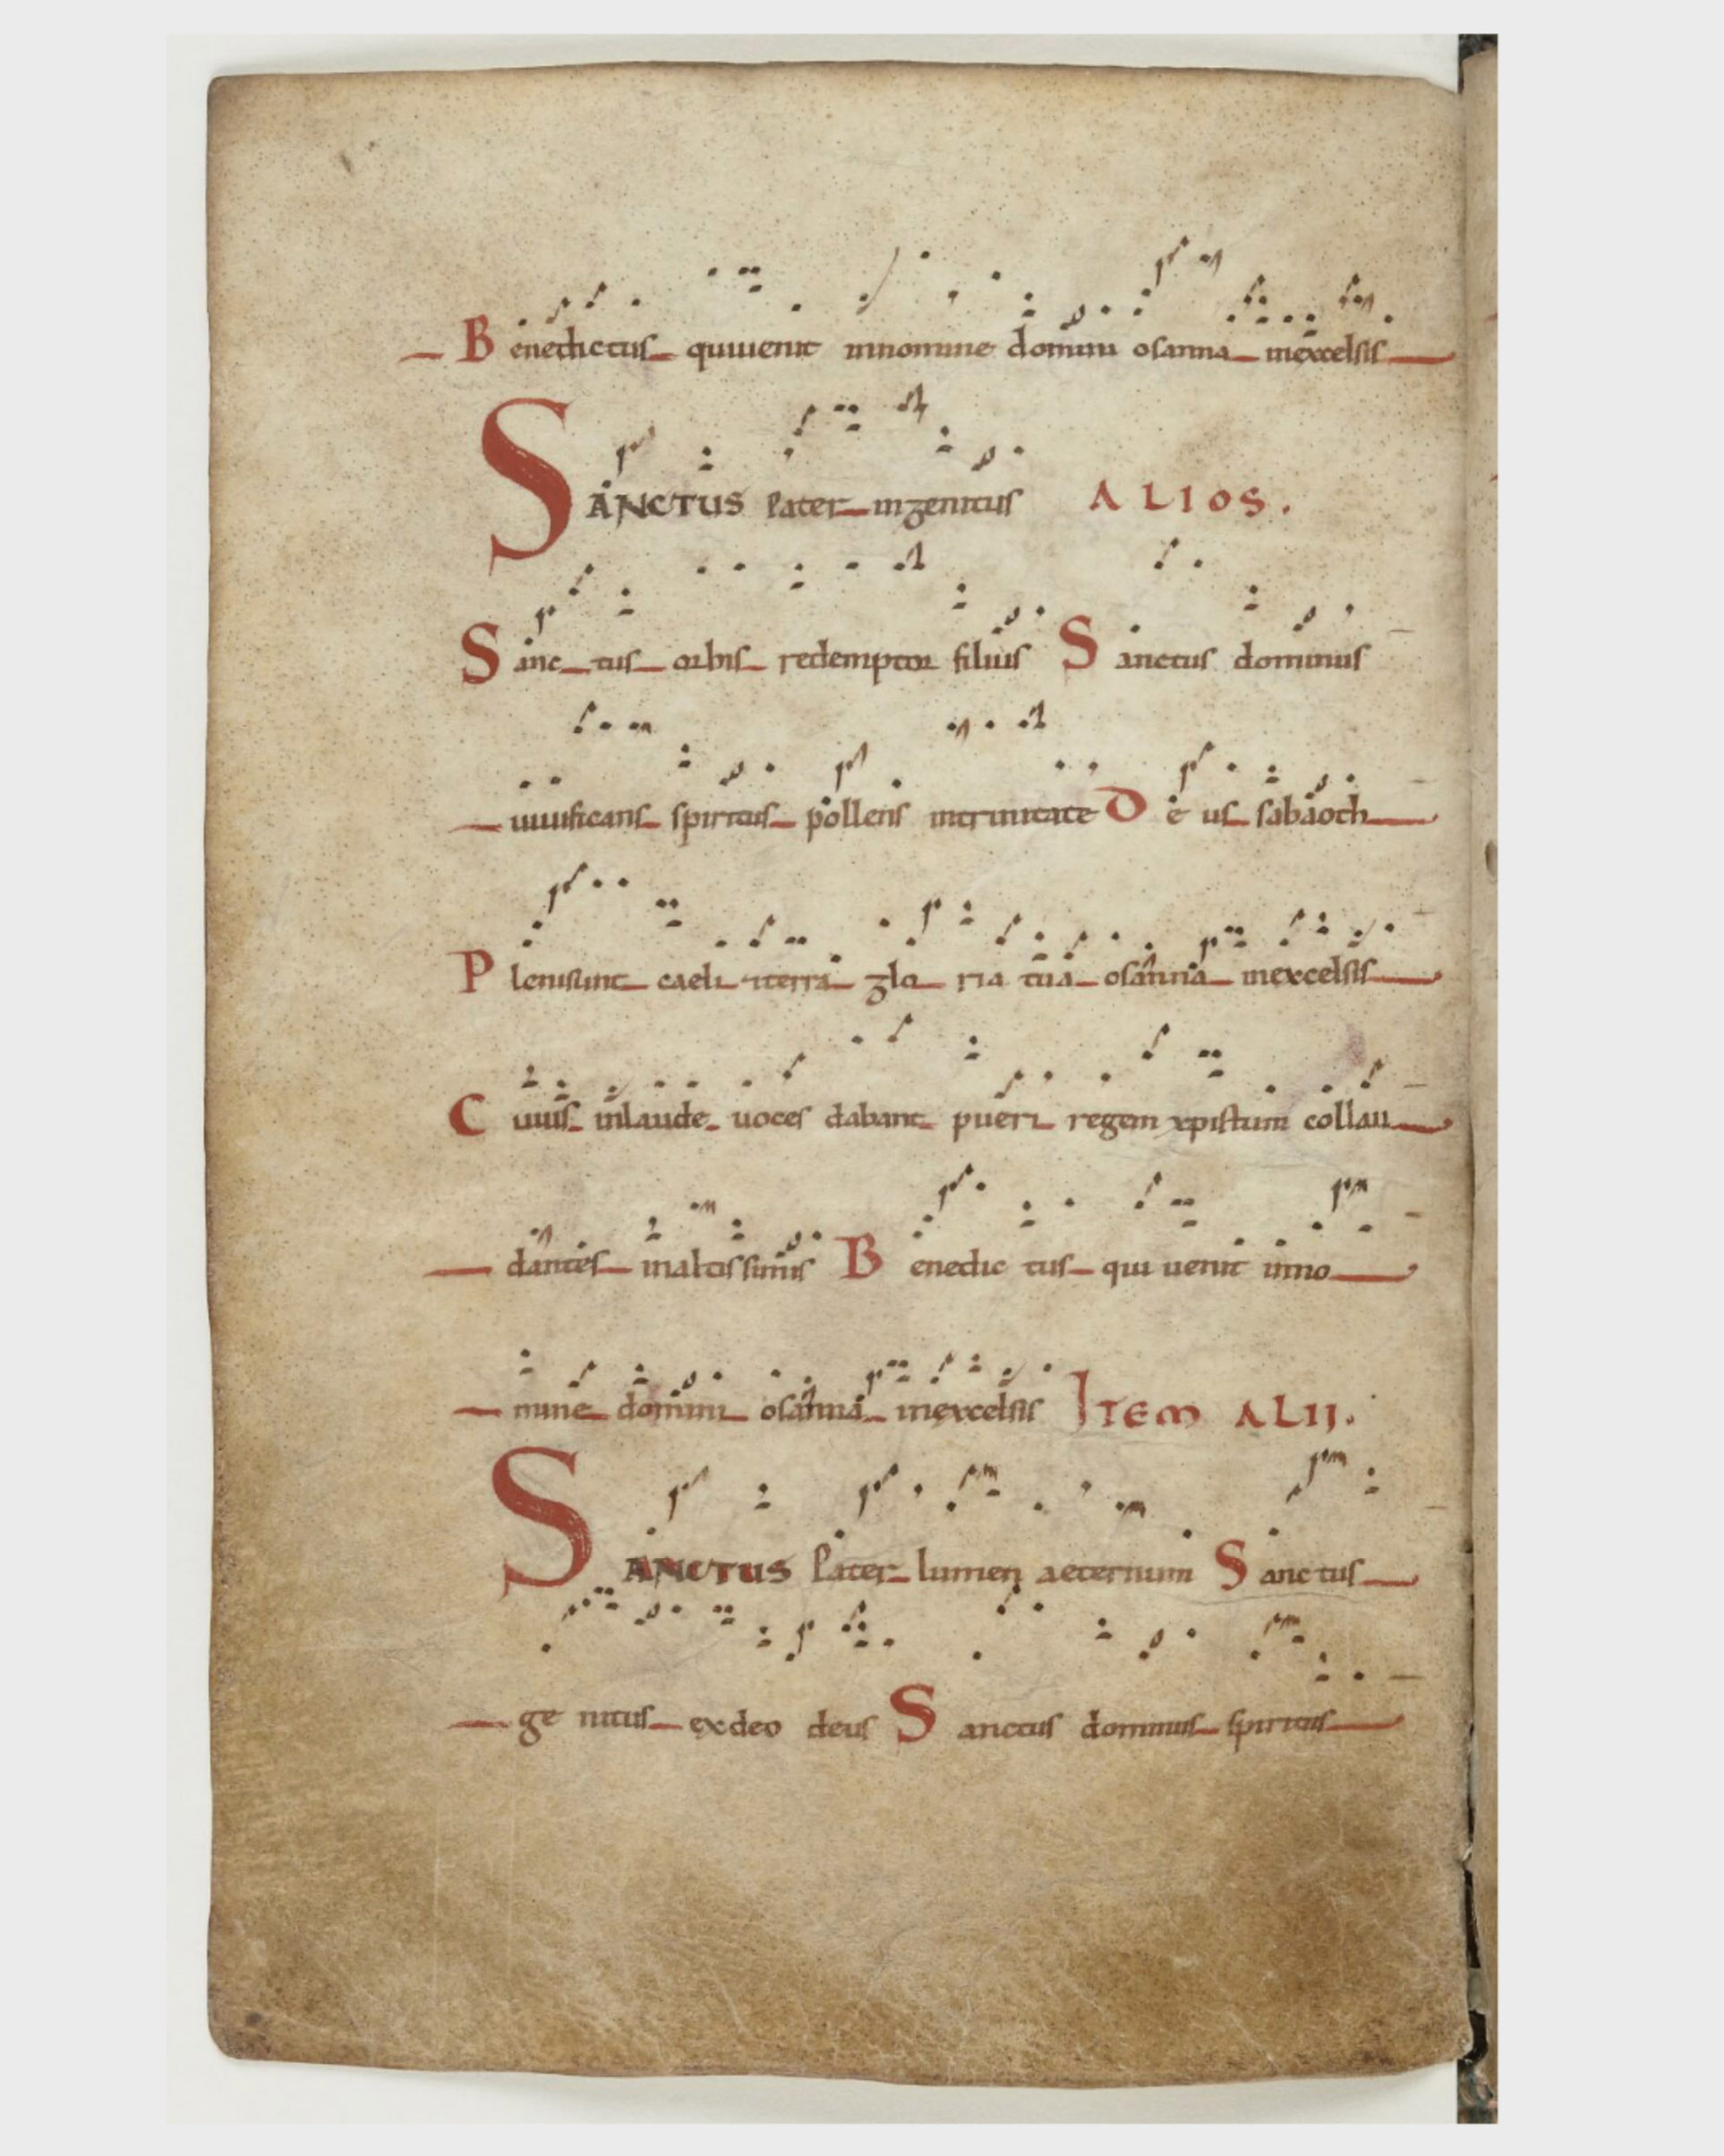 Benedictus quiuenit innomine domini osanna inexcelsis
SANCTUS Pater ingenitus ALIOS.
Sanctus orbis redemptor filius Sanctus dominus
uiuificans spiritus pollens intrinitate Deus sabaoth
Plenisunt caeli &terra gloria tua osanna inexcelsis
Cuius inlaude uoces dabant pueri regem xpistum collau
dantes inaltissimis Benedictus qui uenit inno
mine domini osanna inexcelsis ITEM ALII.
SANCTUS Pater lumen aeternum Sanctus
genitus exdeo deus Sanctus dominus spiritus